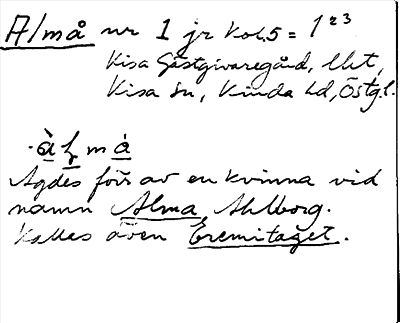 Almå nr 1 jr kol. 5 = 1²³
Kisa Gästgivaregård, lht,
Kisa sn, Kinda hd, Östgl.
àl̥mȧ
Ägdes förr av en kvinna vid
namn Alma Ahlborg.
Kallas även Eremitaget.